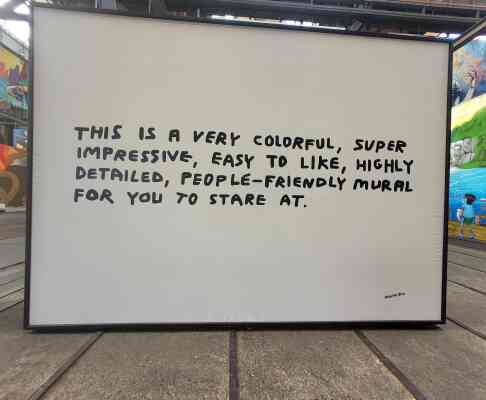 THIS IS A VERY COLORFUL, SUPER
IMPRESSIVE, EASY TO LIKE, HIGHLY
DETAILED, PEOPLE-FRIENDLY MURAL
FOR YOU TO STARE AT.